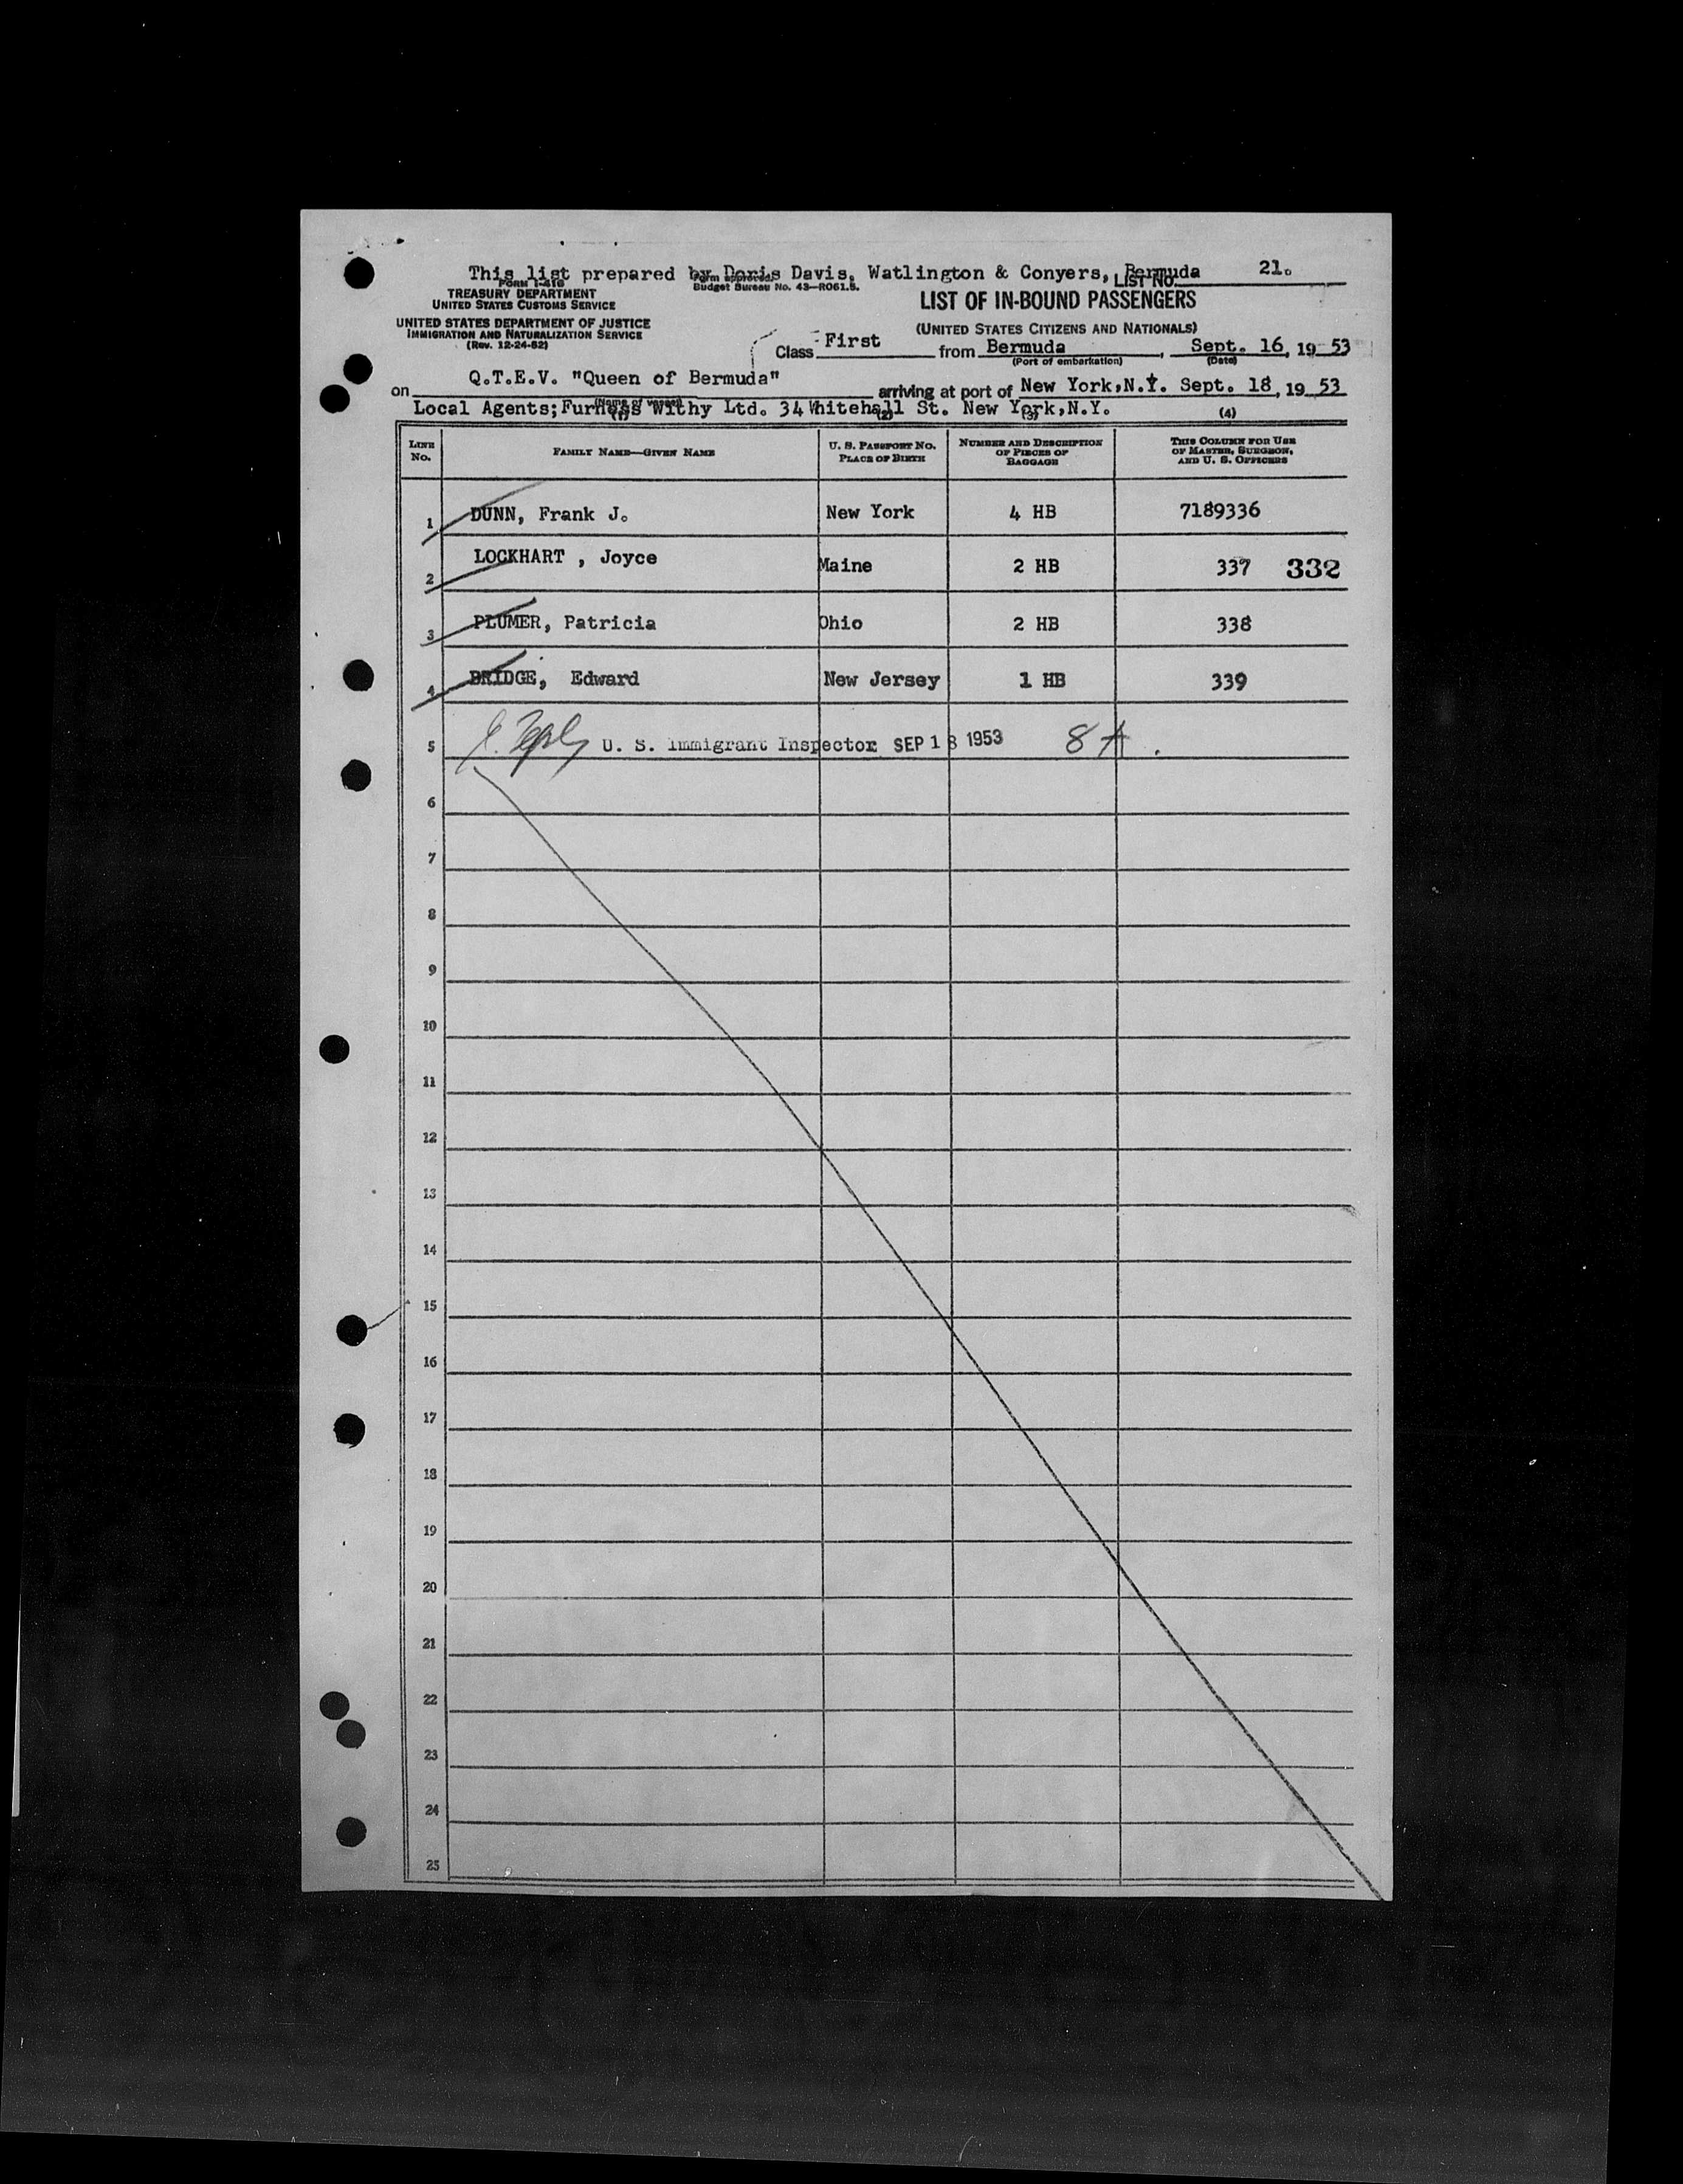 This list prepared by Doris Davis, Watlington & Conyers, Bermuda 21.
LIST NO.
FORM I-418
Form approved.
Budget Bureau No. 43—R061.5.
TREASURY DEPARTMENT
UNITED STATES CUSTOMS SERVICE
LIST OF IN-BOUND PASSENGERS
UNITED STATES DEPARTMENT OF JUSTICE
IMMIGRATION AND NATURALIZATION SERVICE
(Rev. 12-24-52)
(UNITED STATES CITIZENS AND NATIONALS)
Class First from Bermuda, Sept. 16, 19 53
(Port of embarkation) (Date)
on Q.T.E.V. "Queen of Bermuda" arriving at port of New York,N.Y. Sept. 18, 19 53
(Name of vessel)
Local Agents;Furness Withy Ltd. 34 Whitehall St. New York,N.Y.
(1) (2) (3) (4)
LINE NO. FAMILY NAME—GIVEN NAME U. S. PASSPORT NO. PLACE OF BIRTH NUMBER AND DESCRIPTION OF PIECES OF BAGGAGE THIS COLUMN FOR USE OF MASTER, SURGEON, AND U. S. OFFICERS
1 DUNN, Frank J. New York 4 HB 7189336
2 LOCKHART , Joyce Maine 2 HB 337 332
3 PLUMER, Patricia Ohio 2 HB 338
4 BRIDGE, Edward New Jersey 1 HB 339
5 U. S. Immigrant Inspector SEP 18 1953
6
7
8
9
10
11
12
13
14
15
16
17
18
19
20
21
22
23
24
25